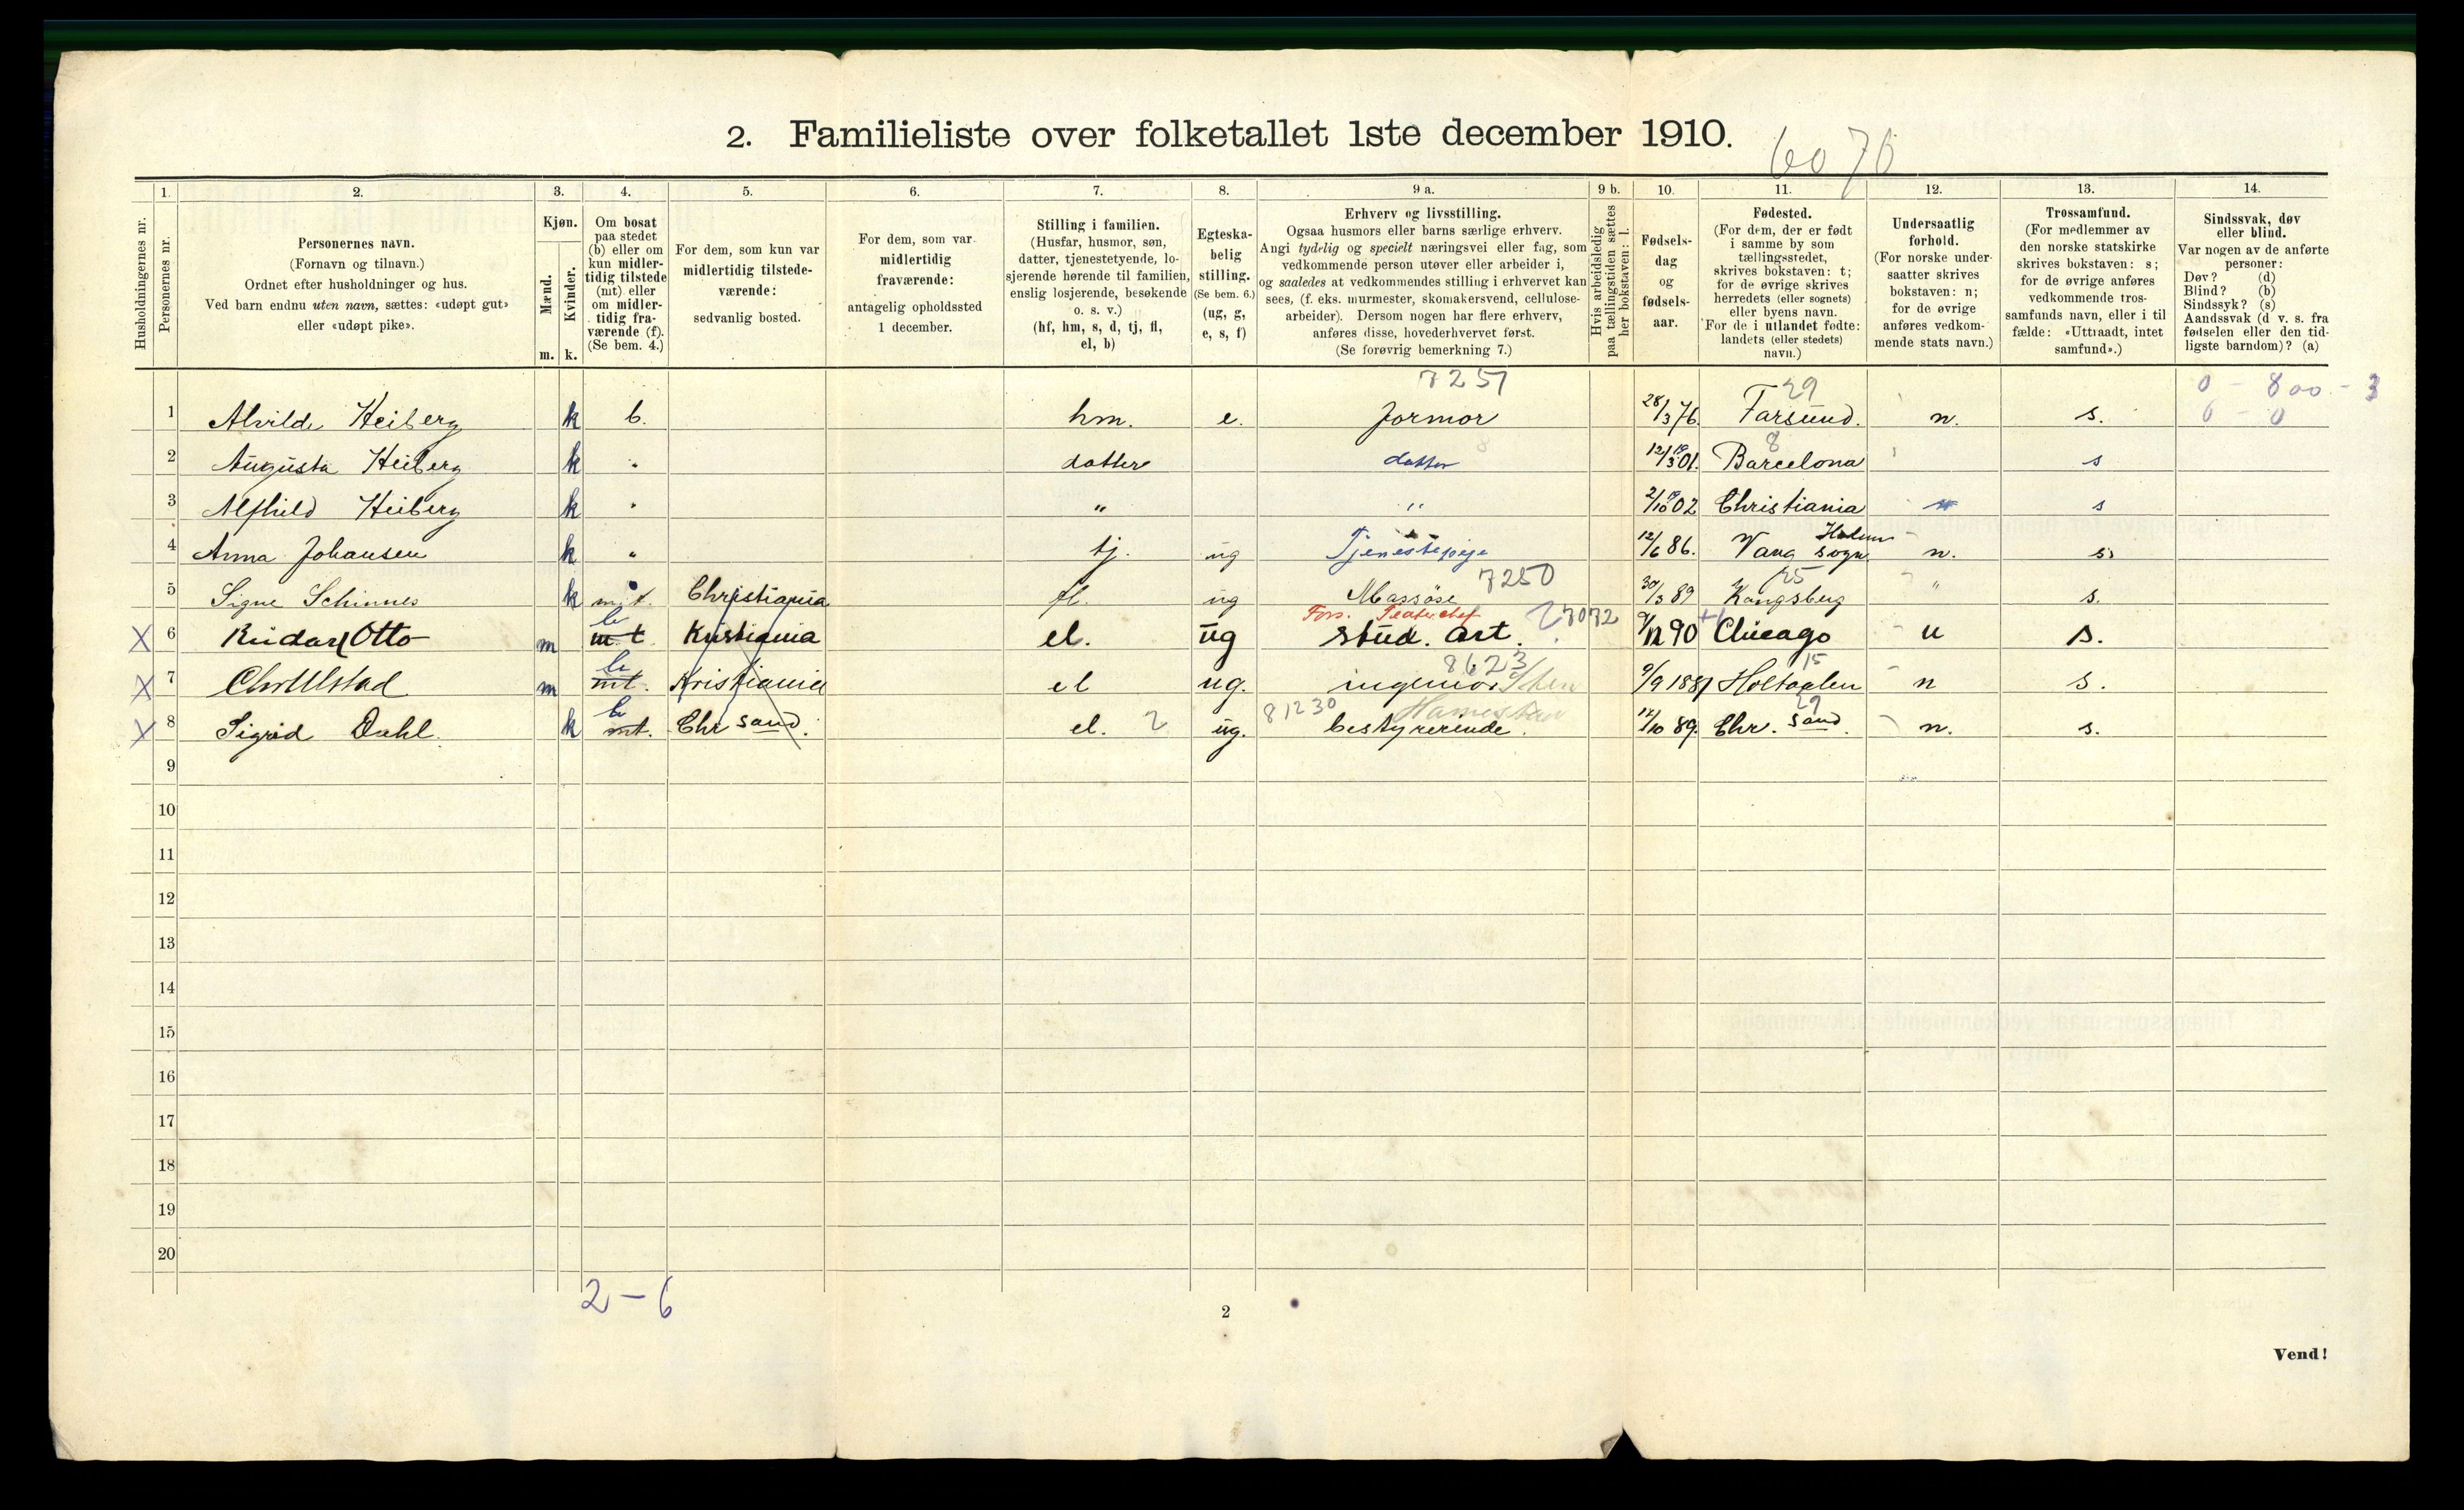 2. Familieliste over folketallet 1ste december 1910.
6070
Husholdningernes nr.
1. Personernes nr.
2. Personernes navn. (Fornavn og tilnavn.) Ordnet efter husholdninger og hus. Ved barn endnu uten navn, sættes: «udøpt gut» eller «udøpt pike».
3. Kjøn. Mænd. m. Kvinder. k.
4. Om bosat paa stedet (b) eller om kun midlertidig tilstede (mt) eller om midlertidig fraværende (f). (Se bem. 4.)
5. For dem, som kun var midlertidig tilstedeværende: sedvanlig bosted.
6. For dem, som var midlertidig fraværende: antagelig opholdssted 1 december.
7. Stilling i familien. (Husfar, husmor, søn, datter, tjenestetyende, losjerende hørende til familien, enslig losjerende, besøkende o. s. v.) (hf, hm, s, d, tj, fl, el, b)
8. Egteskabelig stilling. (Se bem. 6.) (ug, g, e, s, f)
9 a. Erhverv og livsstilling. Ogsaa husmors eller barns særlige erhverv. Angi tydelig og specielt næringsvei eller fag, som vedkommende person utøver eller arbeider i, og saaledes at vedkommendes stilling i erhvervet kan sees, (f. eks. murmester, skomakersvend, cellulosearbeider). Dersom nogen har flere erhverv, anføres disse, hovederhvervet først. (Se forøvrig bemerkning 7.)
9 b. Hvis arbeidsledig paa tællingstiden sættes her bokstaven: l.
10. Fødselsdag og fødselsaar.
11. Fødested. (For dem, der er født i samme by som tællingsstedet, skrives bokstaven: t; for de øvrige skrives herredets (eller sognets) eller byens navn. For de i utlandet fødte: landets (eller stedets) navn.)
12. Undersaatlig forhold. (For norske undersaatter skrives bokstaven: n; for de øvrige anføres vedkommende stats navn.)
13. Trossamfund. (For medlemmer av den norske statskirke skrives bokstaven: s; for de øvrige anføres vedkommende trossamfunds navn, eller i tilfælde: «Uttraadt, intet samfund».)
14. Sindssvak, døv eller blind. Var nogen av de anførte personer: Døv? (d) Blind? (b) Sindssyk? (s) Aandssvak (d v. s. fra fødselen eller den tidligste barndom)? (a)
7251 29 0 - 800 - 3
1 Alvilde Heiberg k b. hm. e. Jormor 28/3 76. Farsund. n. s. 0 - 0
8
2 Augusta Heiberg k " datter datter 12/3 1901. Barcelona s
3 Alfhild Heiberg k " " " 2/10 1902 Christiania n s
4 Anna Johansen k " tj. ug Tjenestepige 12/6 86. Vang sogn Hedem n. s.
7250 25
5 Signe Schinnes k mt. Christiania fl. ug Massøse 30/3 89 Kongsberg " s.
Fors. Teaterchef 27072
X 6 Rudarl Otto m mt b Kristiania el. ug stud. art. 9/12 90 Chicago u s.
8623 15
X 7 Chr Ulstad m mt. b Kristiania el ug. ingeniør 9/9 1881 Holtaalen n s.
81230 29
X 8 Sigrid Dahl k mt. b Chr sand. el. 2 ug. bestyrerinde. 12/10 89. Chr. sand. n. s.
9
10
11
12
13
14
15
16
17
18
19
20
2 - 6
2
Vend!